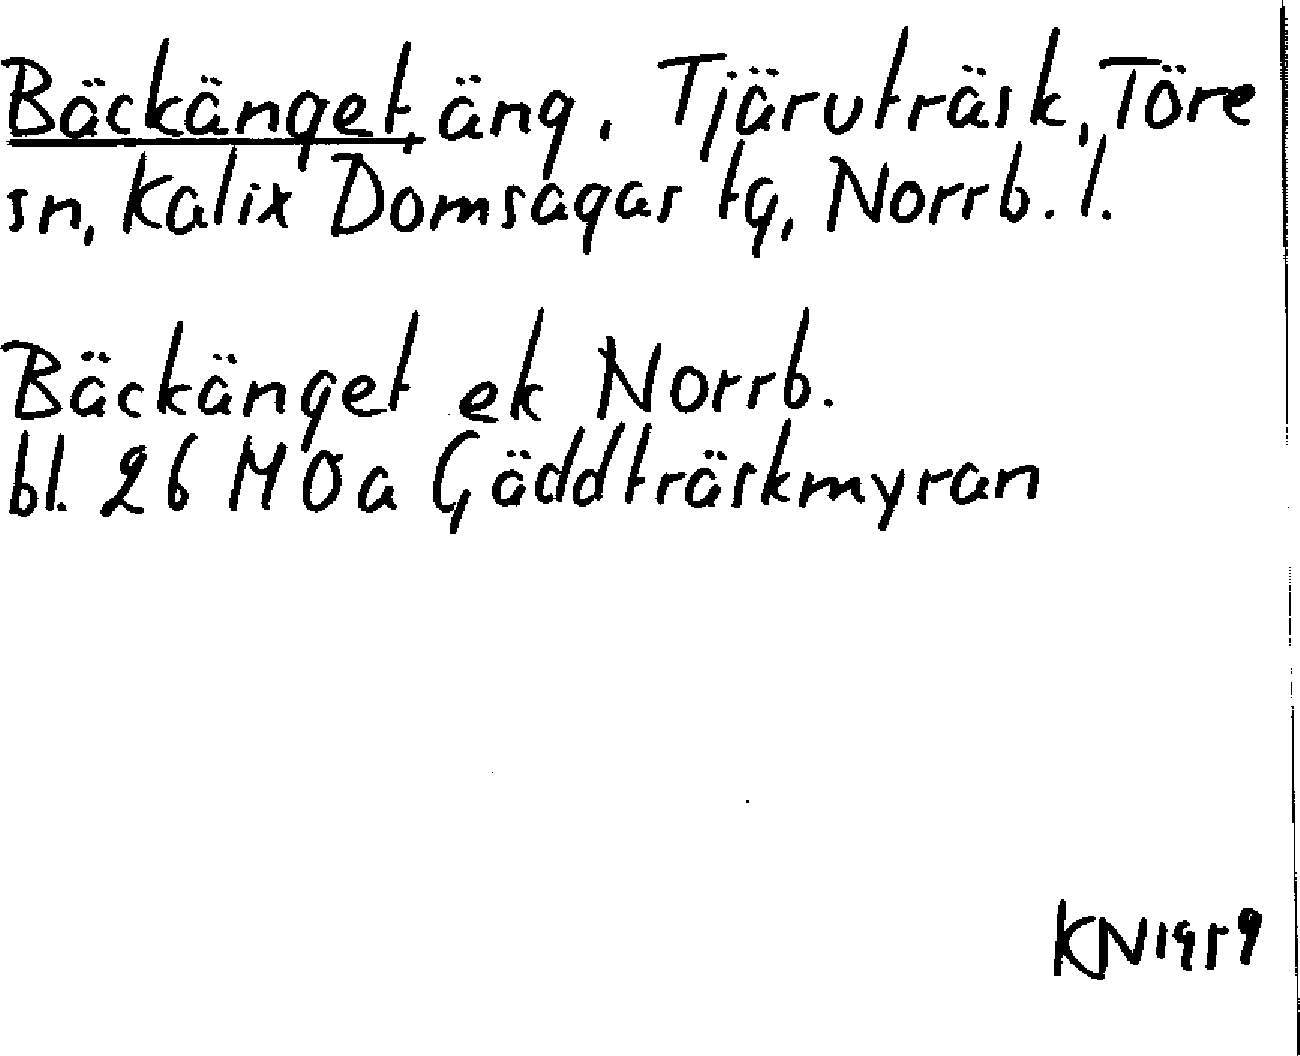 Bäckänget, äng. Tjäruträsk, Töre
sn, Kalix Domsagas tg, Norrb. l.
Bäckänget ek Norrb.
bl. 26 M 0 a Gäddträskmyran
KN 1959